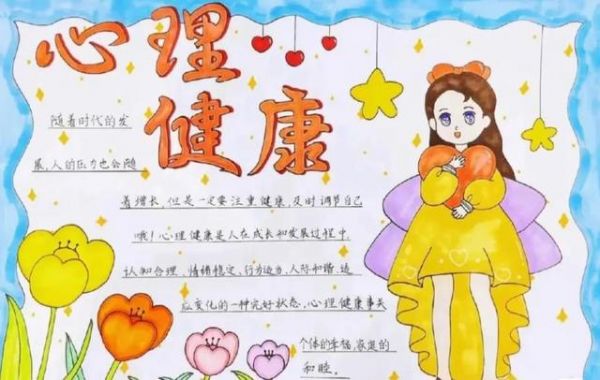 心理
健康
随着时代的发
展,人的压力也会随
着增长,但是一定要注重健康,及时调节自己
哦!心理健康是人在成长和发展过程中,
认知合理、情绪稳定、行为适当、人际和谐、适
应变化的一种完好状态,心理健康事关
个体的幸福,家庭的
和睦。